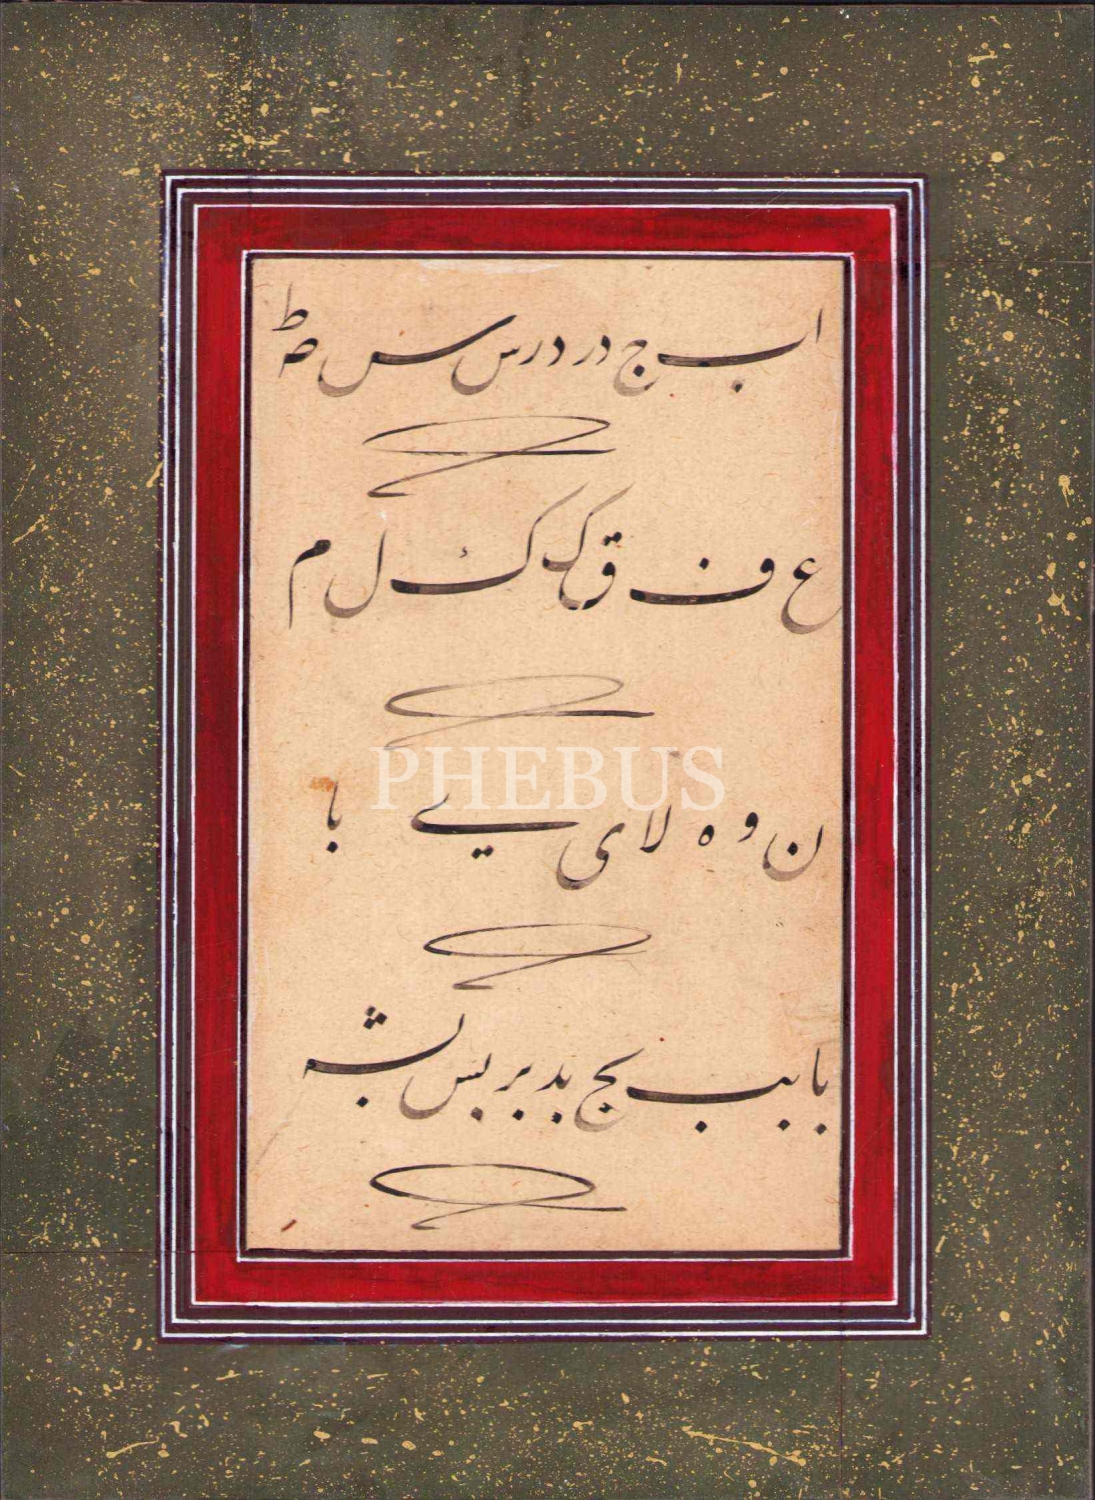 ا ب ج د ر د ر س س س ص ط
ع ف ق ک ک ل م
PHEBUS
ن و ه لا ی ے با
با بب بج بد بر بس